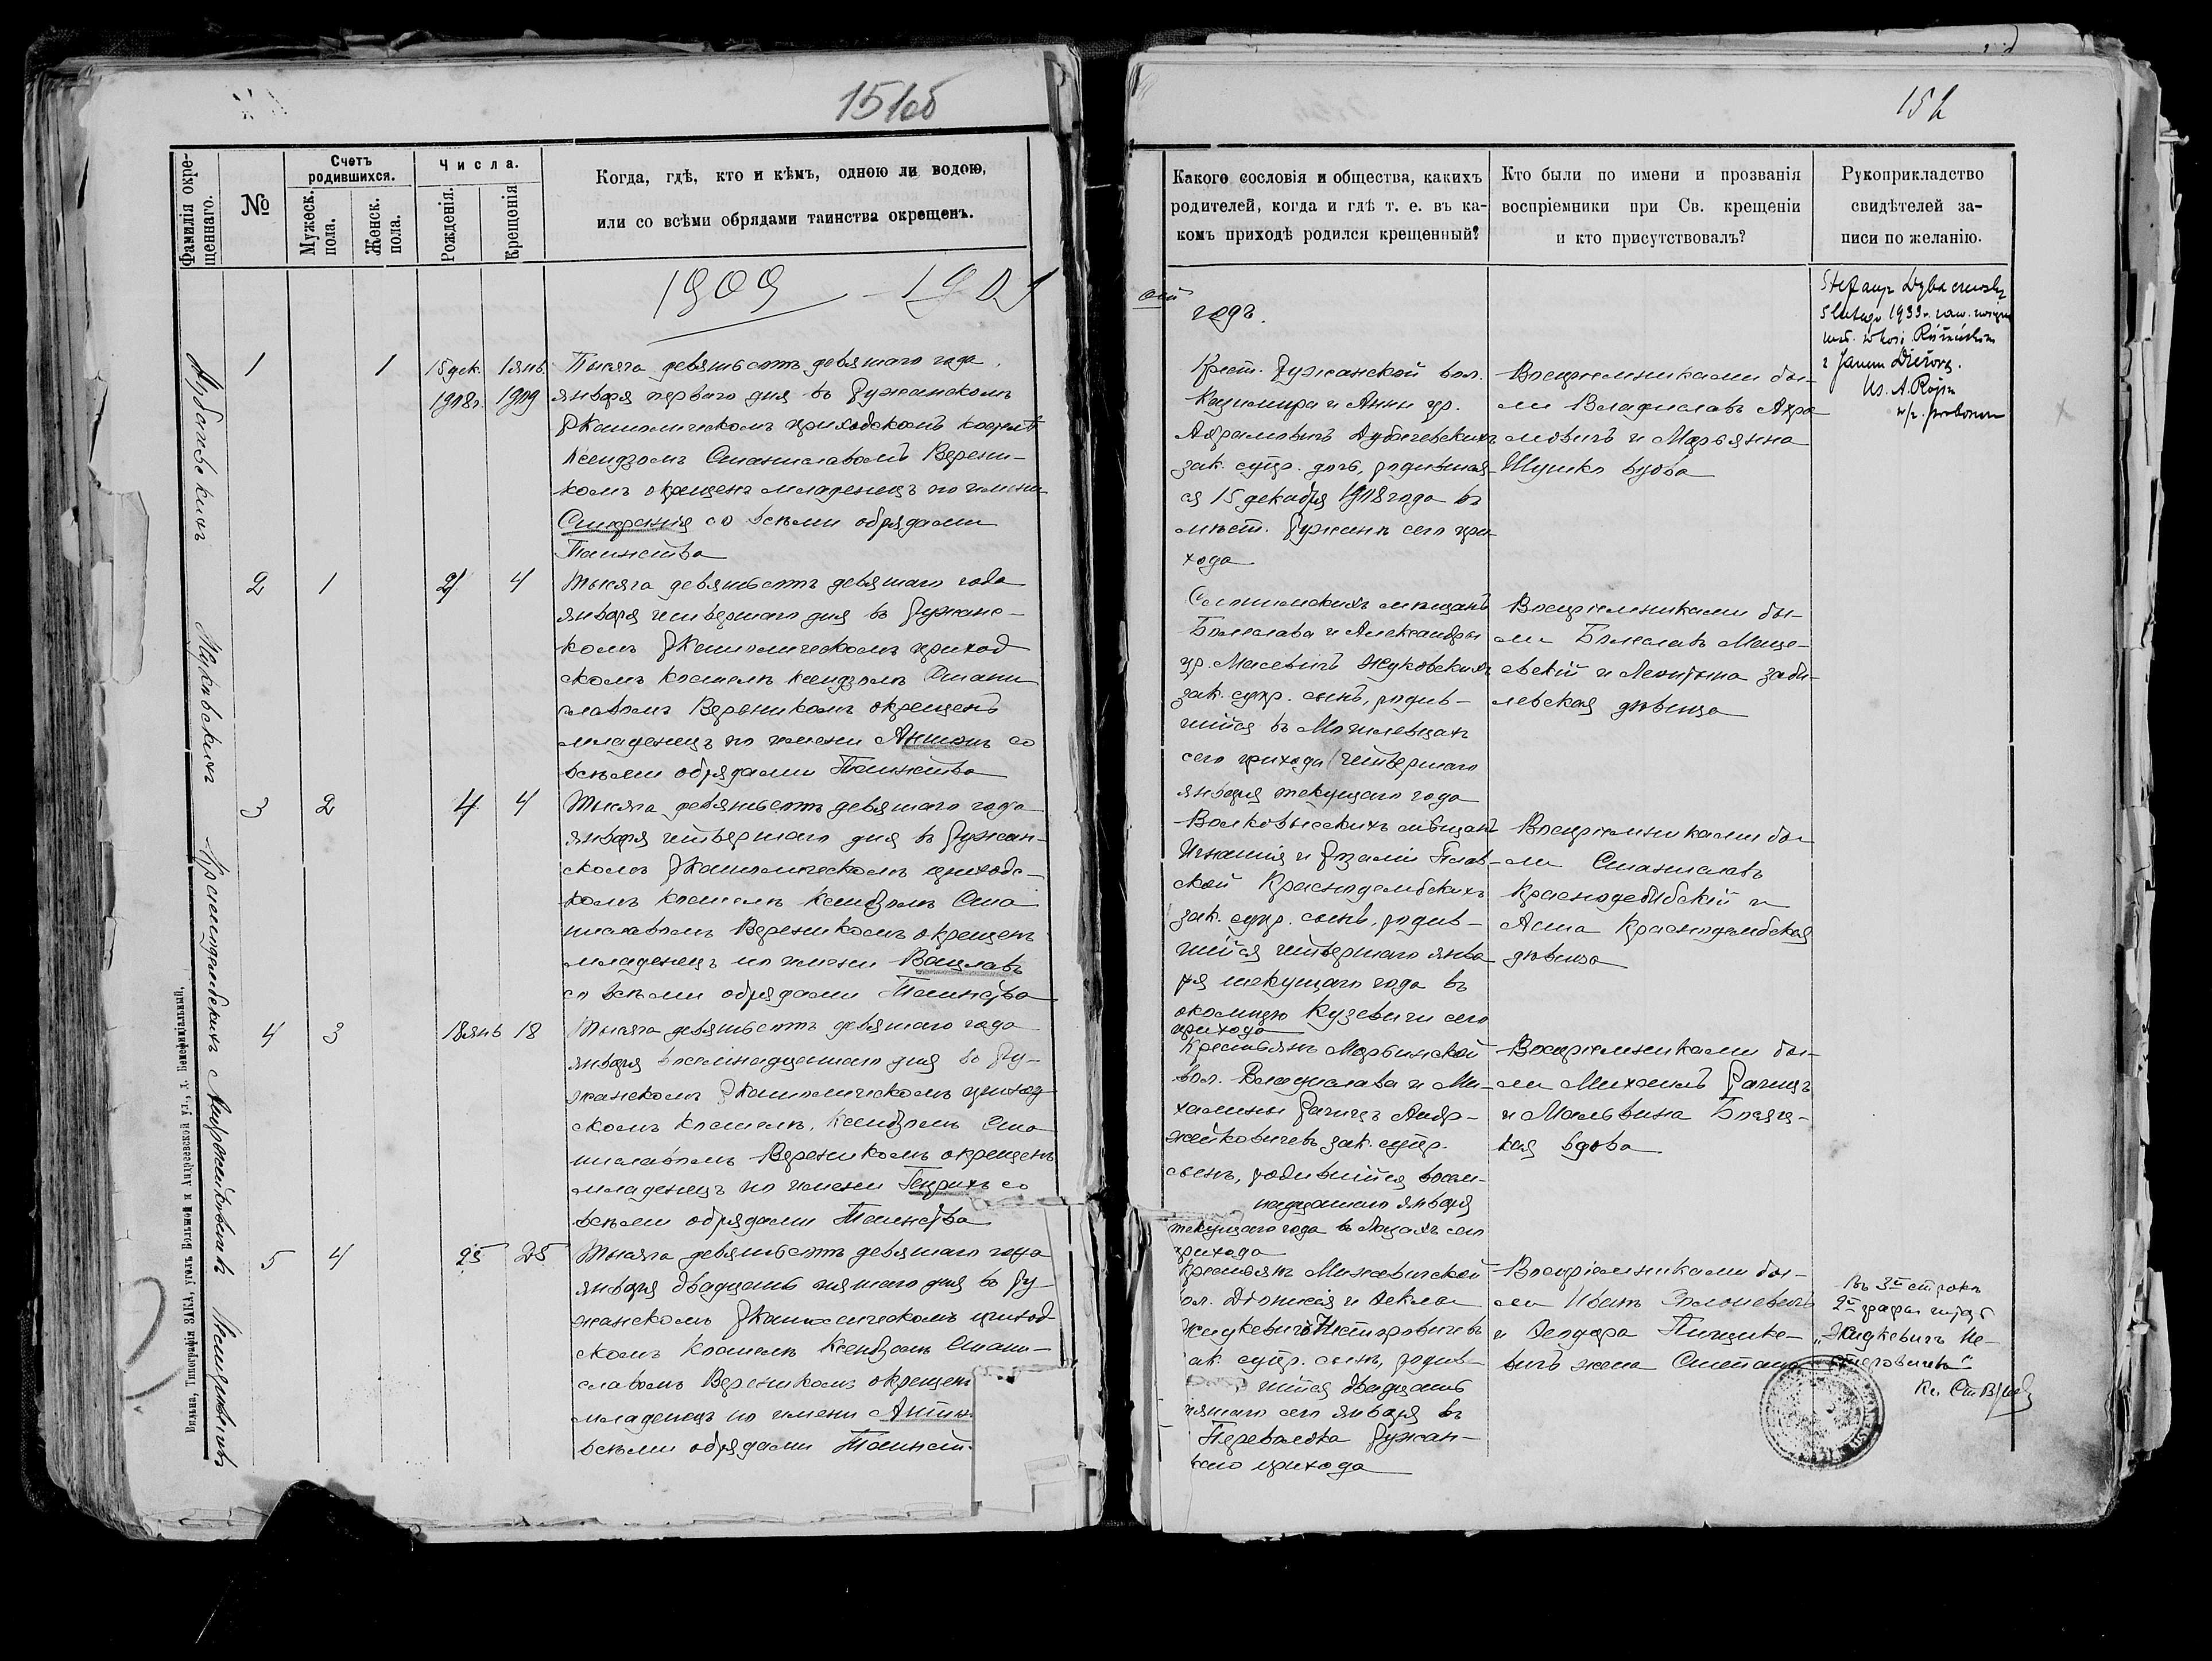 151об
Фамилія окре-
щеннаго.
№
Счетъ
родившихся.
Мужеск.
пола.
Женск.
пола.
Числа.
Рожденія.
Крещенія
Когда, гдѣ, кто и кѣмъ, одною ли водою,
или со всѣми обрядами таинства окрещенъ.
1909
1
1
15 дек.
1908г.
1 янв.
1909
Тысяча девятьсотъ девятаго года
января перваго дня въ Ружанскомъ
Р Католическомъ приходскомъ костелѣ
Ксендзомъ Станиславомъ Верени-
комъ окрещенъ младенецъ по имени
со всѣми обрядами
Таинства
2
1
4
Тысяча девятьсотъ девятаго года
января четвертаго дня въ Ружанс-
комъ Р Католическомъ приход
скомъ костелѣ ксендзомъ Стани
славомъ Вереникомъ окрещенъ
младенецъ по имени Антонъ со
всѣми обрядами Таинства
3
2
4
4
Тысяча девятьсотъ девятаго года
января четвертаго дня въ Ружан-
скомъ Р Католическомъ приходс-
комъ костелѣ Ксендзомъ Ста
ниславомъ Вереникомъ окрещенъ
младенецъ по имени Вацлавъ
со всѣми обрядами Таинства
4
3
18 янв
18
Тысяча девятьсотъ девятаго года
января восемнадцатаго дня въ Ру-
жанскомъ Р Католическомъ приход
скомъ костелѣ, ксендзомъ Ста
ниславомъ Вереникомъ окрещенъ
младенецъ по имени Генрихъ со
всѣми обрядами Таинства
5
4
25
25
Тысяча девятьсотъ девятаго года
января двадцать пятаго дня въ Ру-
жанскомъ Р Католическомъ приход
скомъ костелѣ Ксендзомъ Стани-
славомъ Вереникомъ окрещенъ
младенецъ по имени
всѣми обрядами Таинст
Жуковскихъ
Краснодембскихъ
Андржейковичевъ
Вильна, Типографія ЗАКА, уголъ Большой и Андреевской ул., д. Бенефиціальный.
152
Какого сословія и общества, какихъ
родителей, когда и гдѣ т. е. въ ка-
комъ приходѣ родился крещенный?
Кто были по имени и прозванія
воспріемники при Св. крещеніи
и кто присутствовалъ?
Рукоприкладство
свидѣтелей за-
писи по желанію.
годъ.
Крест. Ружанской вол.
Казимира и Анны ур.
Абрамовичъ Дубачевскихъ
зак. супр. дочь, родившая
ся 15 декабря 1908 года въ
мѣст. Ружанѣ сего при
хода
Воспріемниками бы-
ли Владиславъ Абра
мовичъ и Марьянна
Шушко вдова
5 lutego 1933 r.
Ks. A. Rojko
мѣщанъ
Болеслава и Александры
ур. Масевичъ Жуковскихъ
зак. супр. сынъ, родив-
шійся въ Могилевцахъ
сего прихода четвертаго
января текущаго года
Воспріемниками бы-
ли Болеславъ Маце-
евскій и Леонтина
дѣвица
Волковыскихъ мѣщанъ
Игнатія и Розаліи
Краснодембскихъ
зак. супр. сынъ, родив-
шійся четвертаго янва
ря текущаго года въ
околицѣ Кузевичи сего
прихода
Воспріемниками бы
ли Станиславъ
Краснодембскій и
Анна Краснодембская
дѣвица
Крестьянъ
вол. Владислава и Ми-
халины Рачицъ Андр-
жейковичевъ зак. супр.
сынъ, родившійся восем-
надцатаго января
текущаго года въ Лацахъ сего
прихода
Воспріемниками бы-
ли Михаилъ Рачицъ
и Мальвина
вдова
Крестьянъ Михневичской
ол. Діонисія и Феклы
Жидкевичъ Несторовичевъ
ак. супр. сынъ, родив-
шійся двадцать
пятаго сего января въ
Переволока Ружан-
каго прихода
Воспріемниками бы-
ли Иванъ
и Теодора
вичъ жена Степана
Въ 3й строкѣ
2й графы
„Жидкевичъ Не-
сторовичевъ“